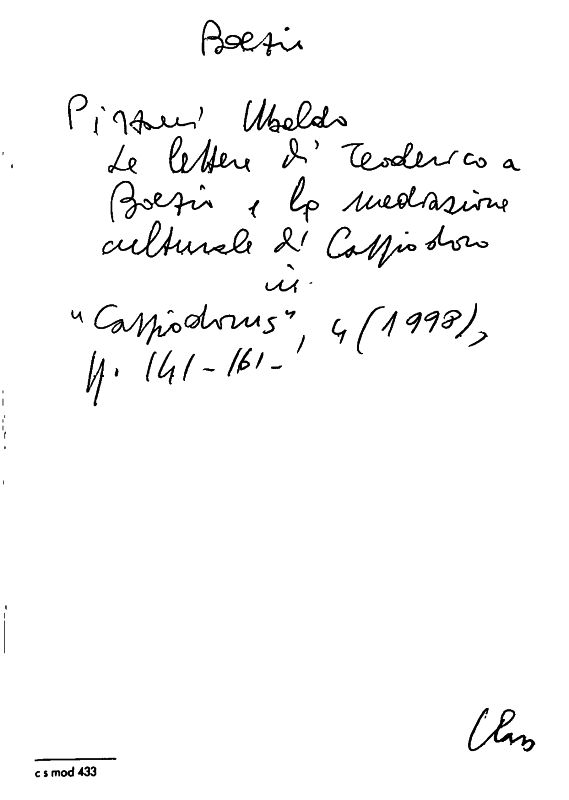 Boezio
Pizzani Ubaldo
Le lettere di Teoderico a
Boezio e la mediazione
culturale di Cassiodoro
in
"Cassiodorus", 4 (1998),
pp. 141-161-
Class
c s mod 433